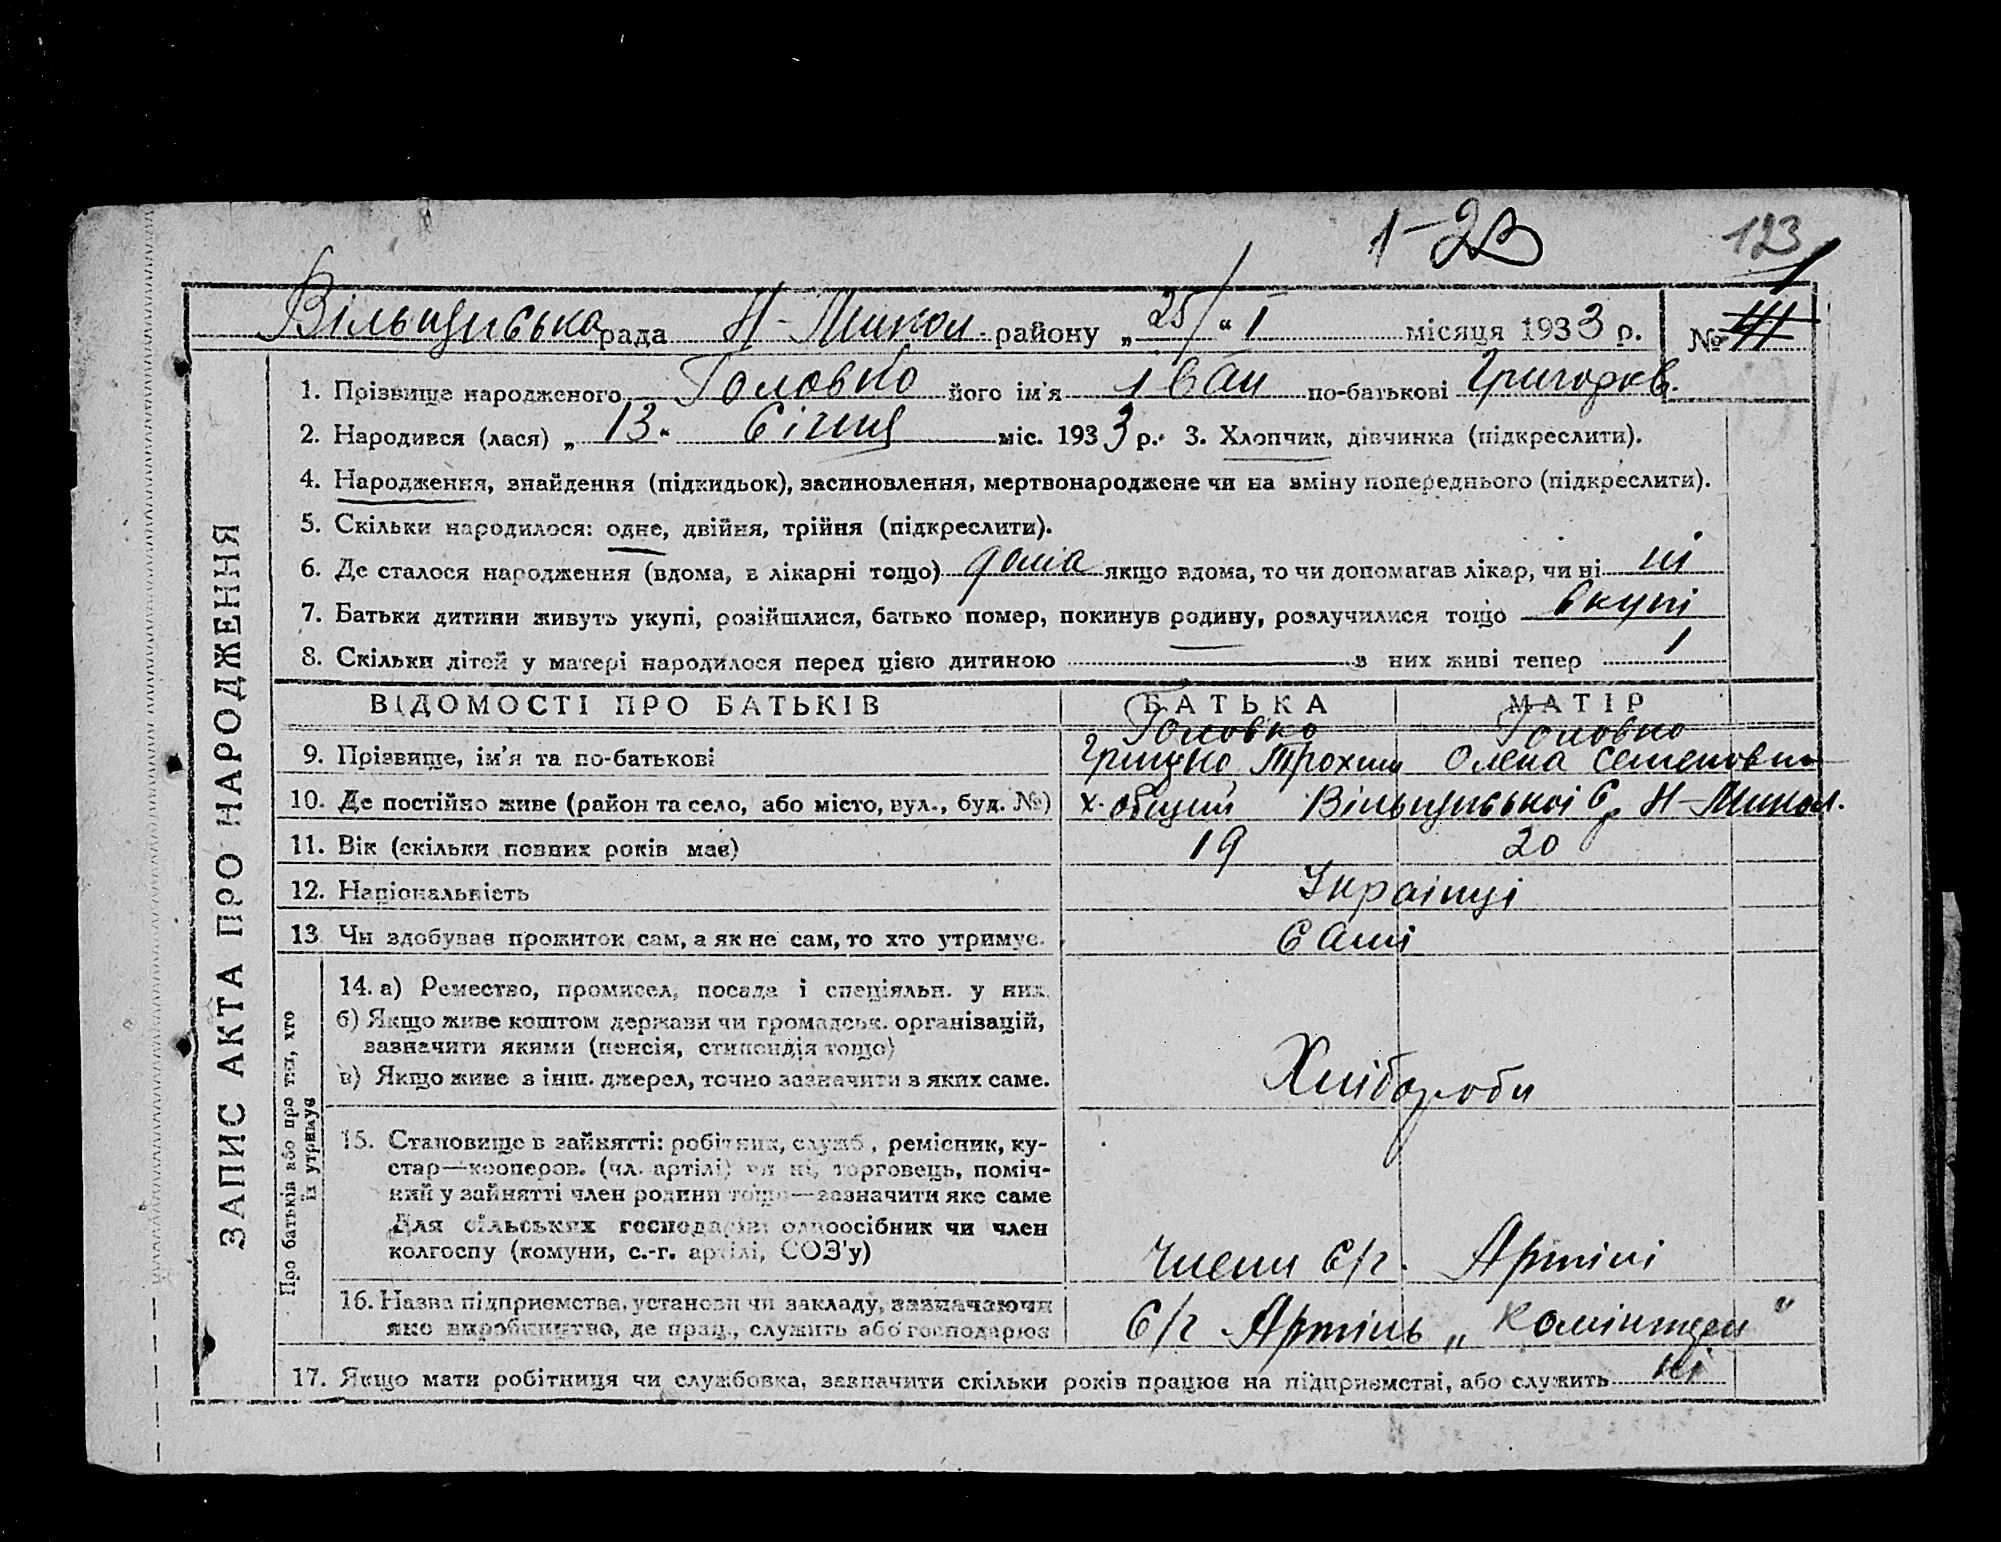 123
Вільцинська рада Н-Микол. району „25“ I місяця 1933 р. № 1
ЗАПИС АКТА ПРО НАРОДЖЕННЯ
1. Прізвище народженого Головко його ім'я Іван по-батькові Григоров.
2. Народився (лася) „13“ Січня міс. 1933 р. 3. Хлопчик, дівчинка (підкреслити).
4. Народження, знайдення (підкидьок), засиновлення, мертвонароджене чи на зміну попереднього (підкреслити).
5. Скільки народилося: одне, двійня, трійня (підкреслити).
6. Де сталося народження (вдома, в лікарні тощо) дома якщо вдома, то чи допомагав лікар, чи ні ні
7. Батьки дитини живуть укупі, розійшлися, батько помер, покинув родину, розлучилися тощо Вкупі
8. Скільки дітей у матері народилося перед цією дитиною — з них живі тепер 1
ВІДОМОСТІ ПРО БАТЬКІВ БАТЬКА МАТІР
9. Прізвище, ім'я та по-батькові Головко Грицько Трохим Головко Олена Семеновна
10. Де постійно живе (район та село, або місто, вул., буд. №) х. общий Вільцинської С/р Н-Микол.
11. Вік (скільки повних років має) 19 20
12. Національність Українці
13. Чи здобував прожиток сам, а як не сам, то хто утримує. Самі
Про батьків або про тих, хто їх утримує
14. а) Ремество, промисел, посада і спеціяльн. у них
б) Якщо живе коштом держави чи громадськ. організацій,
зазначити якими (пенсія, стипендія тощо)
в) Якщо живе з інш. джерел, точно зазначити з яких саме.
Хлібороби
15. Становище в зайнятті: робітник, служб., ремісник, ку-
стар—кооперов. (чл. артілі) чи ні, торговець, поміч-
ний у зайнятті член родини тощо—зазначити яке саме
Для сільських господарів: одноосібник чи член
колгоспу (комуни, с.-г. артілі, СОЗ'у) Члени С/г. Артілі
16. Назва підприємства, установи чи закладу, зазначаючи
яке виробництво, де прац., служить або господарює С/г Артіль „Комінтерн“
17. Якщо мати робітниця чи службовка, зазначити скільки років працює на підприємстві, або служить ні